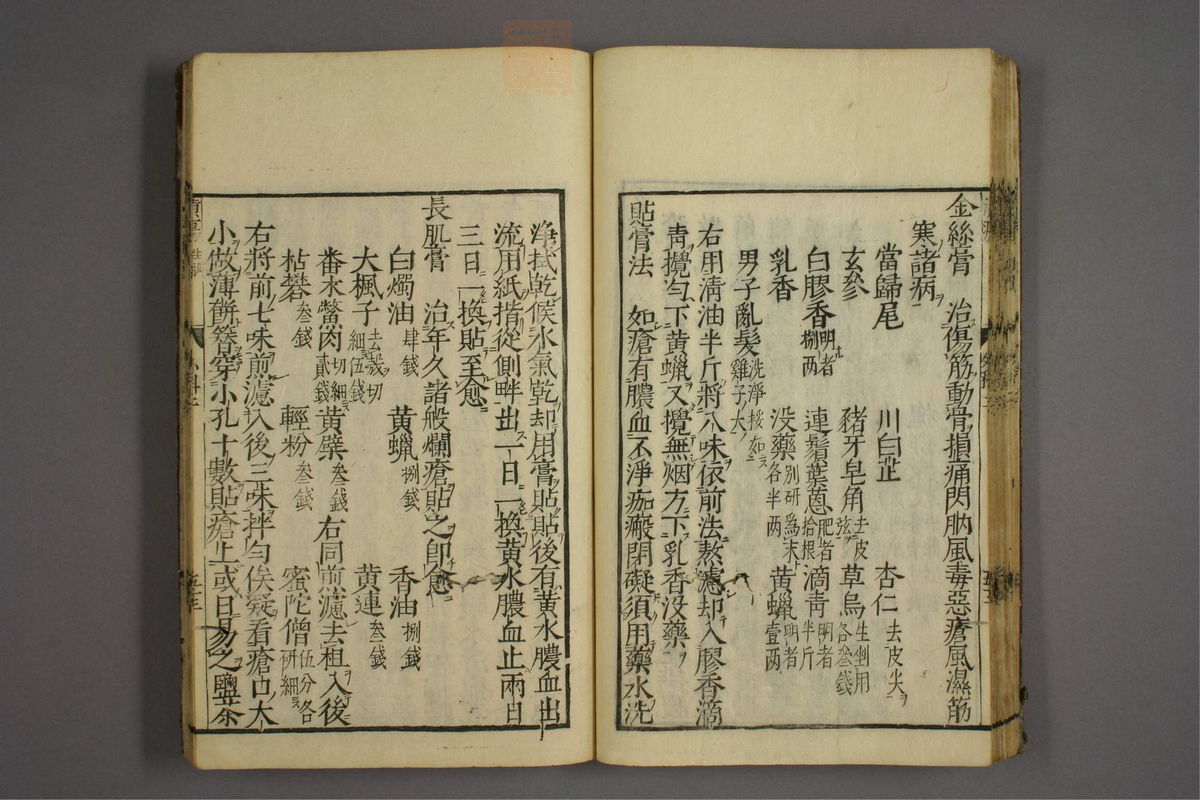 金絲膏　治傷筋動骨損痛閃肭風毒惡瘡風濕筋
寒諸病
當歸尾　川白芷　杏仁去皮尖
玄參　豬牙皂角去皮弦　草烏生剉用各叁錢
白膠香明者捌两　連鬚葉葱肥者拾根　滴青明者半斤
乳香　没藥別研為末各半两　黄蠟明者壹两
男子亂髮洗淨挼如雞子大
右用清油半斤將八味依前法熬濾却入膠香滴
青攪勻下黄蠟又攪無烟方下乳香没藥
貼膏法　如瘡有膿血不淨痂瘢閉礙須用藥水洗
淨拭乾候水氣乾却用膏貼貼後有黄水膿血出
流用紙揩從側畔出一日一換黄水膿血止兩日
三日一換貼至愈
長肌膏　治年久諸般爛瘡貼之即愈
白燭油肆錢　黄蠟捌錢　香油捌錢
大楓子去殼切細伍錢　黄連叁錢
番木鱉肉切細貳錢　黄蘗叁錢　右同煎濾去柤入後
枯礬叁錢　輕粉叁錢　蜜陀僧伍分各研細
右將前七味煎濾入後三味拌勻俟凝看瘡口大
小做薄餅簪穿小孔十數貼瘡上或日易之盥